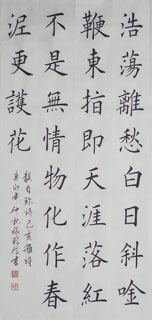 浩蕩離愁白日斜唫
鞭東指即天涯落紅
不是無情物化作春
泥更護花
龔自珍詩己亥雜詩